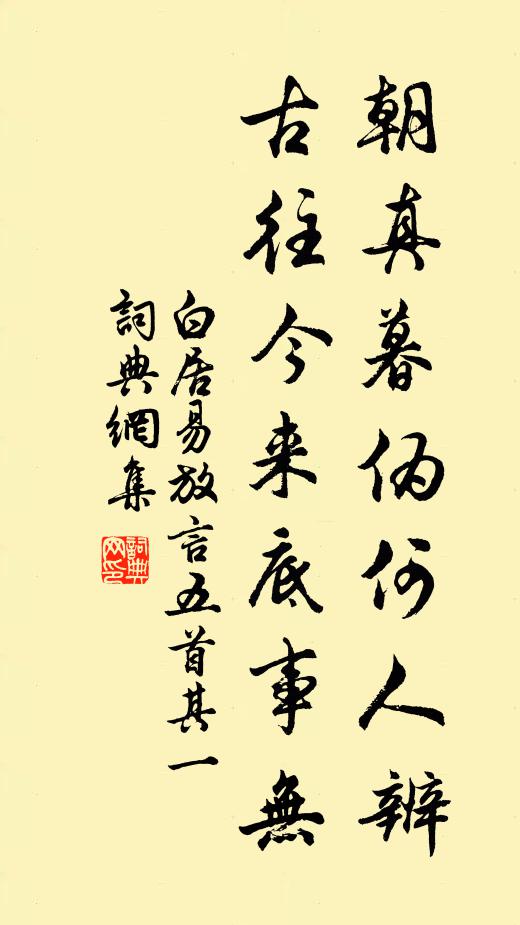 朝真暮偽何人辨
古往今来底事無
白居易放言五首其一
詞典網集
詞典網印